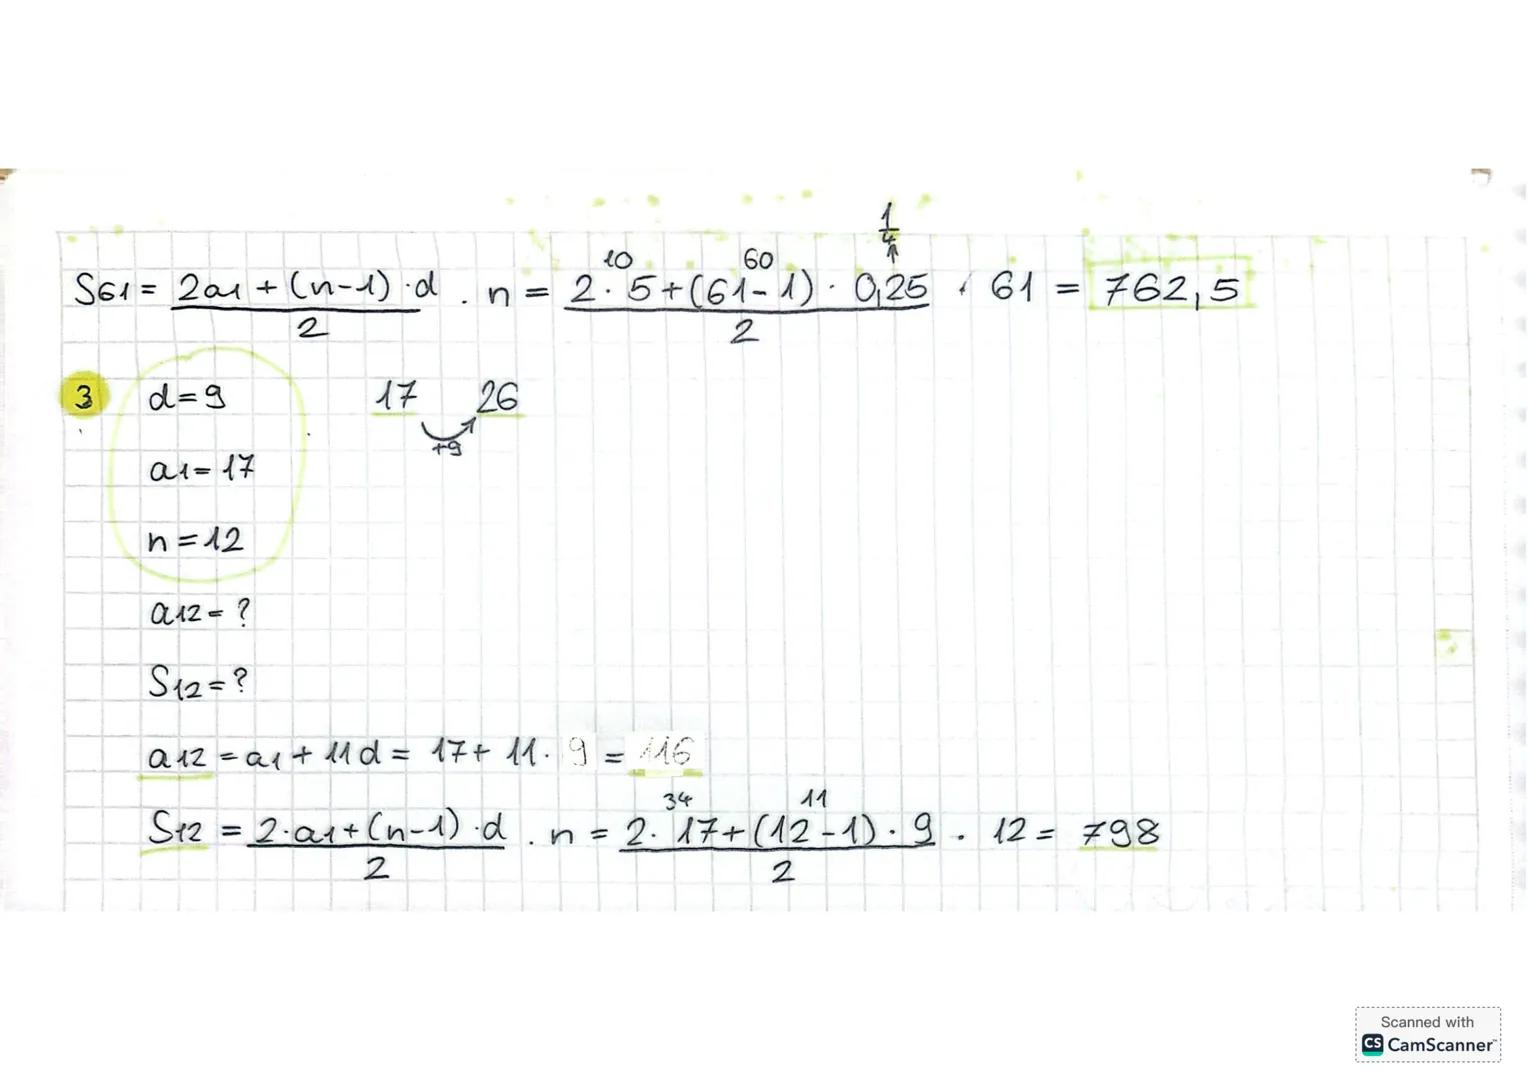 1/4
10 60
S61 = 2a1 + (n-1)·d / 2 · n = 2· 5+(61-1)· 0,25 / 2 · 61 = 762,5
3 d=9 17 26
+9
a1=17
n=12
a12=?
S12=?
a12 =a1+ 11d = 17+ 11· 9 = 116
34 11
S12 = 2·a1+(n-1)·d / 2 · n = 2· 17+(12-1)·9 / 2 · 12= 798
Scanned with
CS CamScanner